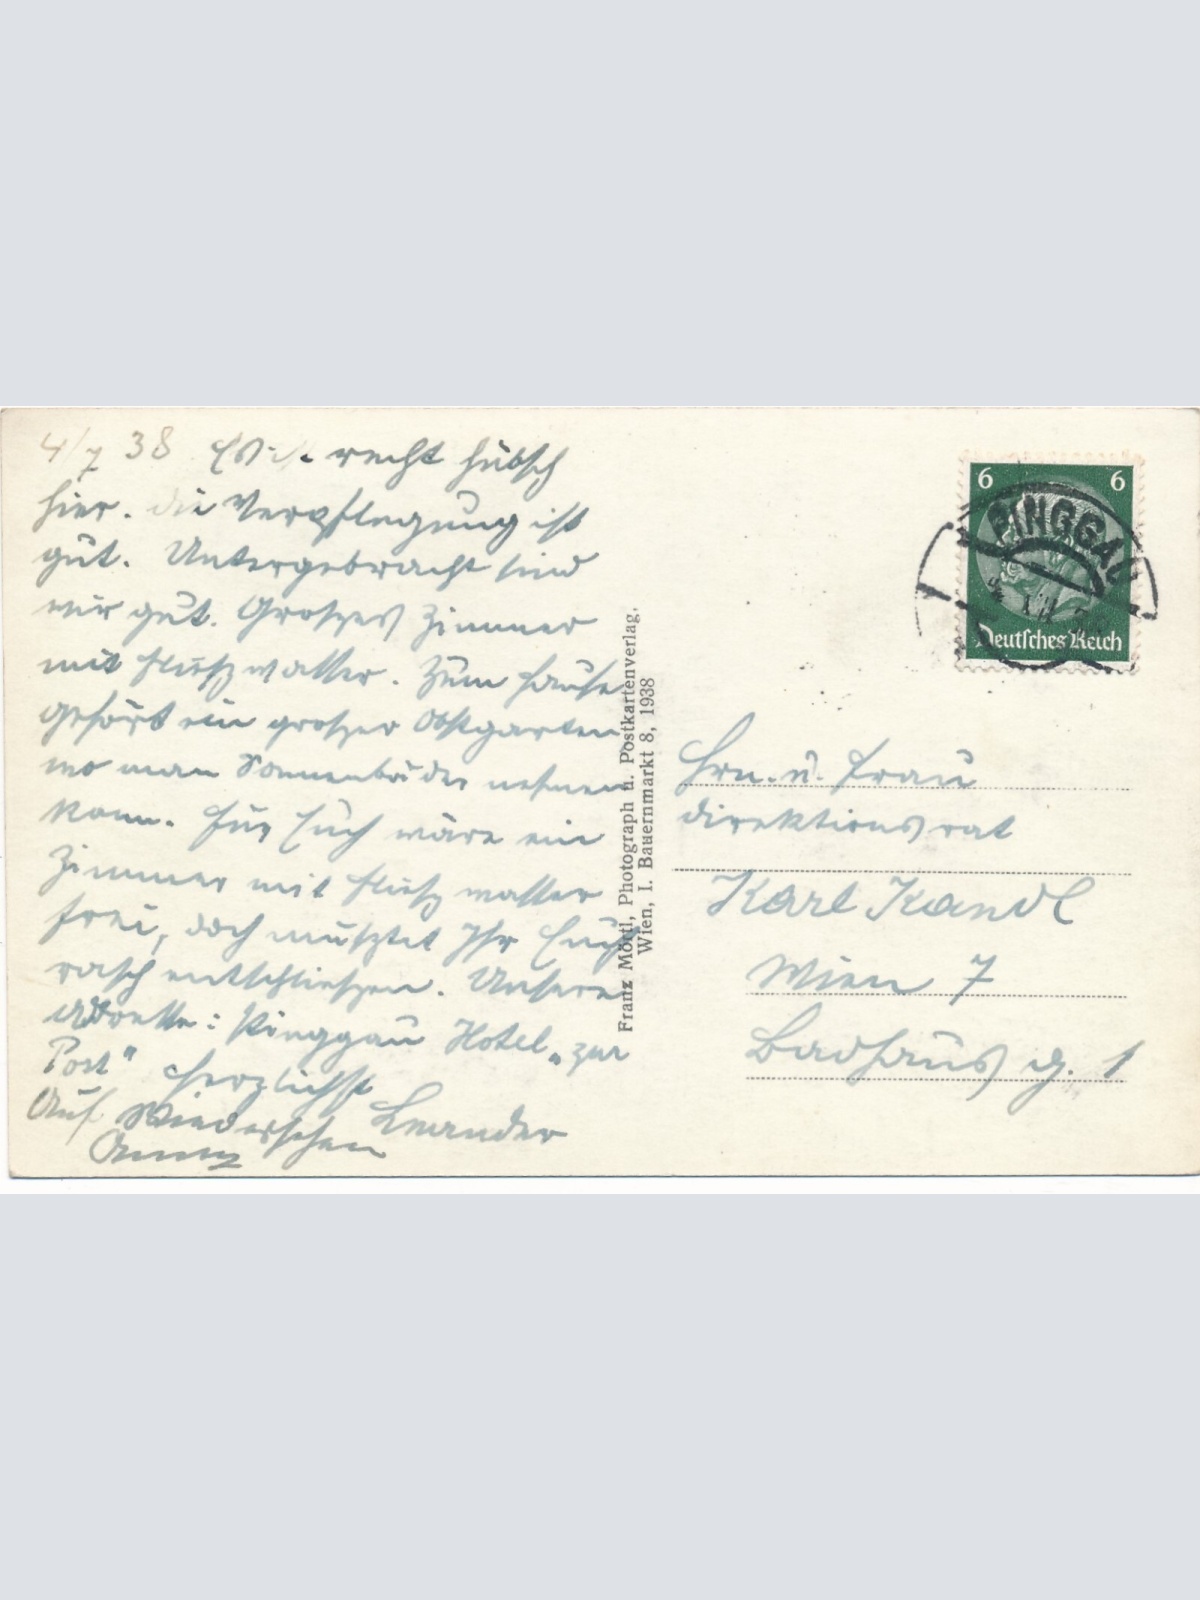 4/7 38 Es ist recht hübsch
hier. Die Verpflegung ist
gut. Untergebracht sind
wir gut. Großes Zimmer
mit Fließwasser. Zum Hause
gehört ein großer Obstgarten
wo man Sonnenbäder nehmen
kann. Für Euch wäre ein
Zimmer mit Fließwasser
frei, doch müsztet Ihr Euch
rasch entschließen. Unsere
Adresse: Pinggau Hotel „zur
Post" Herzlichst
Auf Wiedersehen Leander
Anny
Franz Mörtl, Photograph u. Postkartenverlag,
Wien, I. Bauernmarkt 8, 1938
6 6
PINGGAU
Deutsches Reich
Hrn. u. Frau
Direktionsrat
Karl Kandl
Wien 7
Badhausg. 1